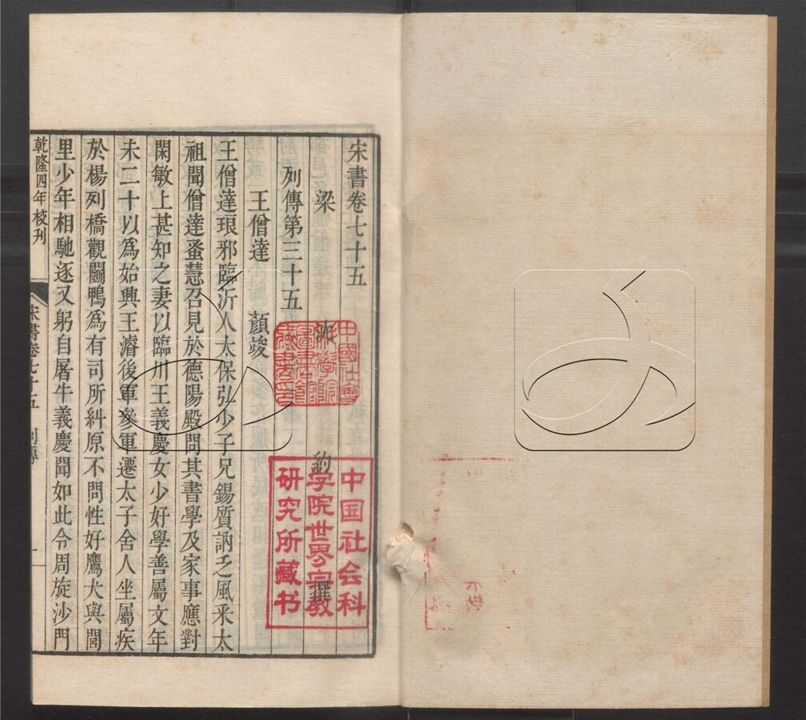 宋書卷七十五
梁 沈 約 撰
列傳第三十五
王僧達 顏竣
王僧達琅邪臨沂人太保弘少子兄錫質訥乏風采太
祖聞僧達蚤慧召見於德陽殿問其書學及家事應對
閑敏上甚知之妻以臨川王義慶女少好學善屬文年
未二十以爲始興王濬後軍參軍遷太子舍人坐屬疾
於楊列橋觀鬭鴨爲有司所糾原不問性好鷹犬與閭
里少年相馳逐又躬自屠牛義慶聞如此令周旋沙門
乾隆四年校刊
宋書卷七十五 列傳
一
中國社會
科學院
圖書館
藏書印
中国社会科
学院世界宗教
研究所藏书